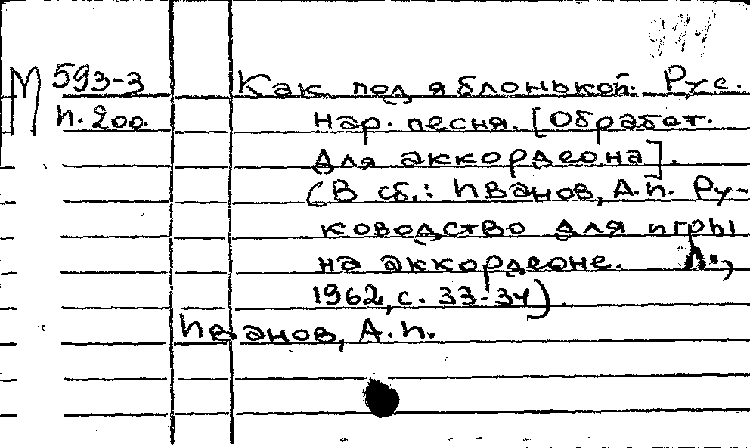 М 593-3 Как под яблонькой. Рус.
п. 200. нар. песня. [Обработ.
для аккордеона].
(В сб.: Иванов, А.П. Ру-
ководство для игры
на аккордеоне. Л.,
1962, с. 33-34).
Иванов, А.П.